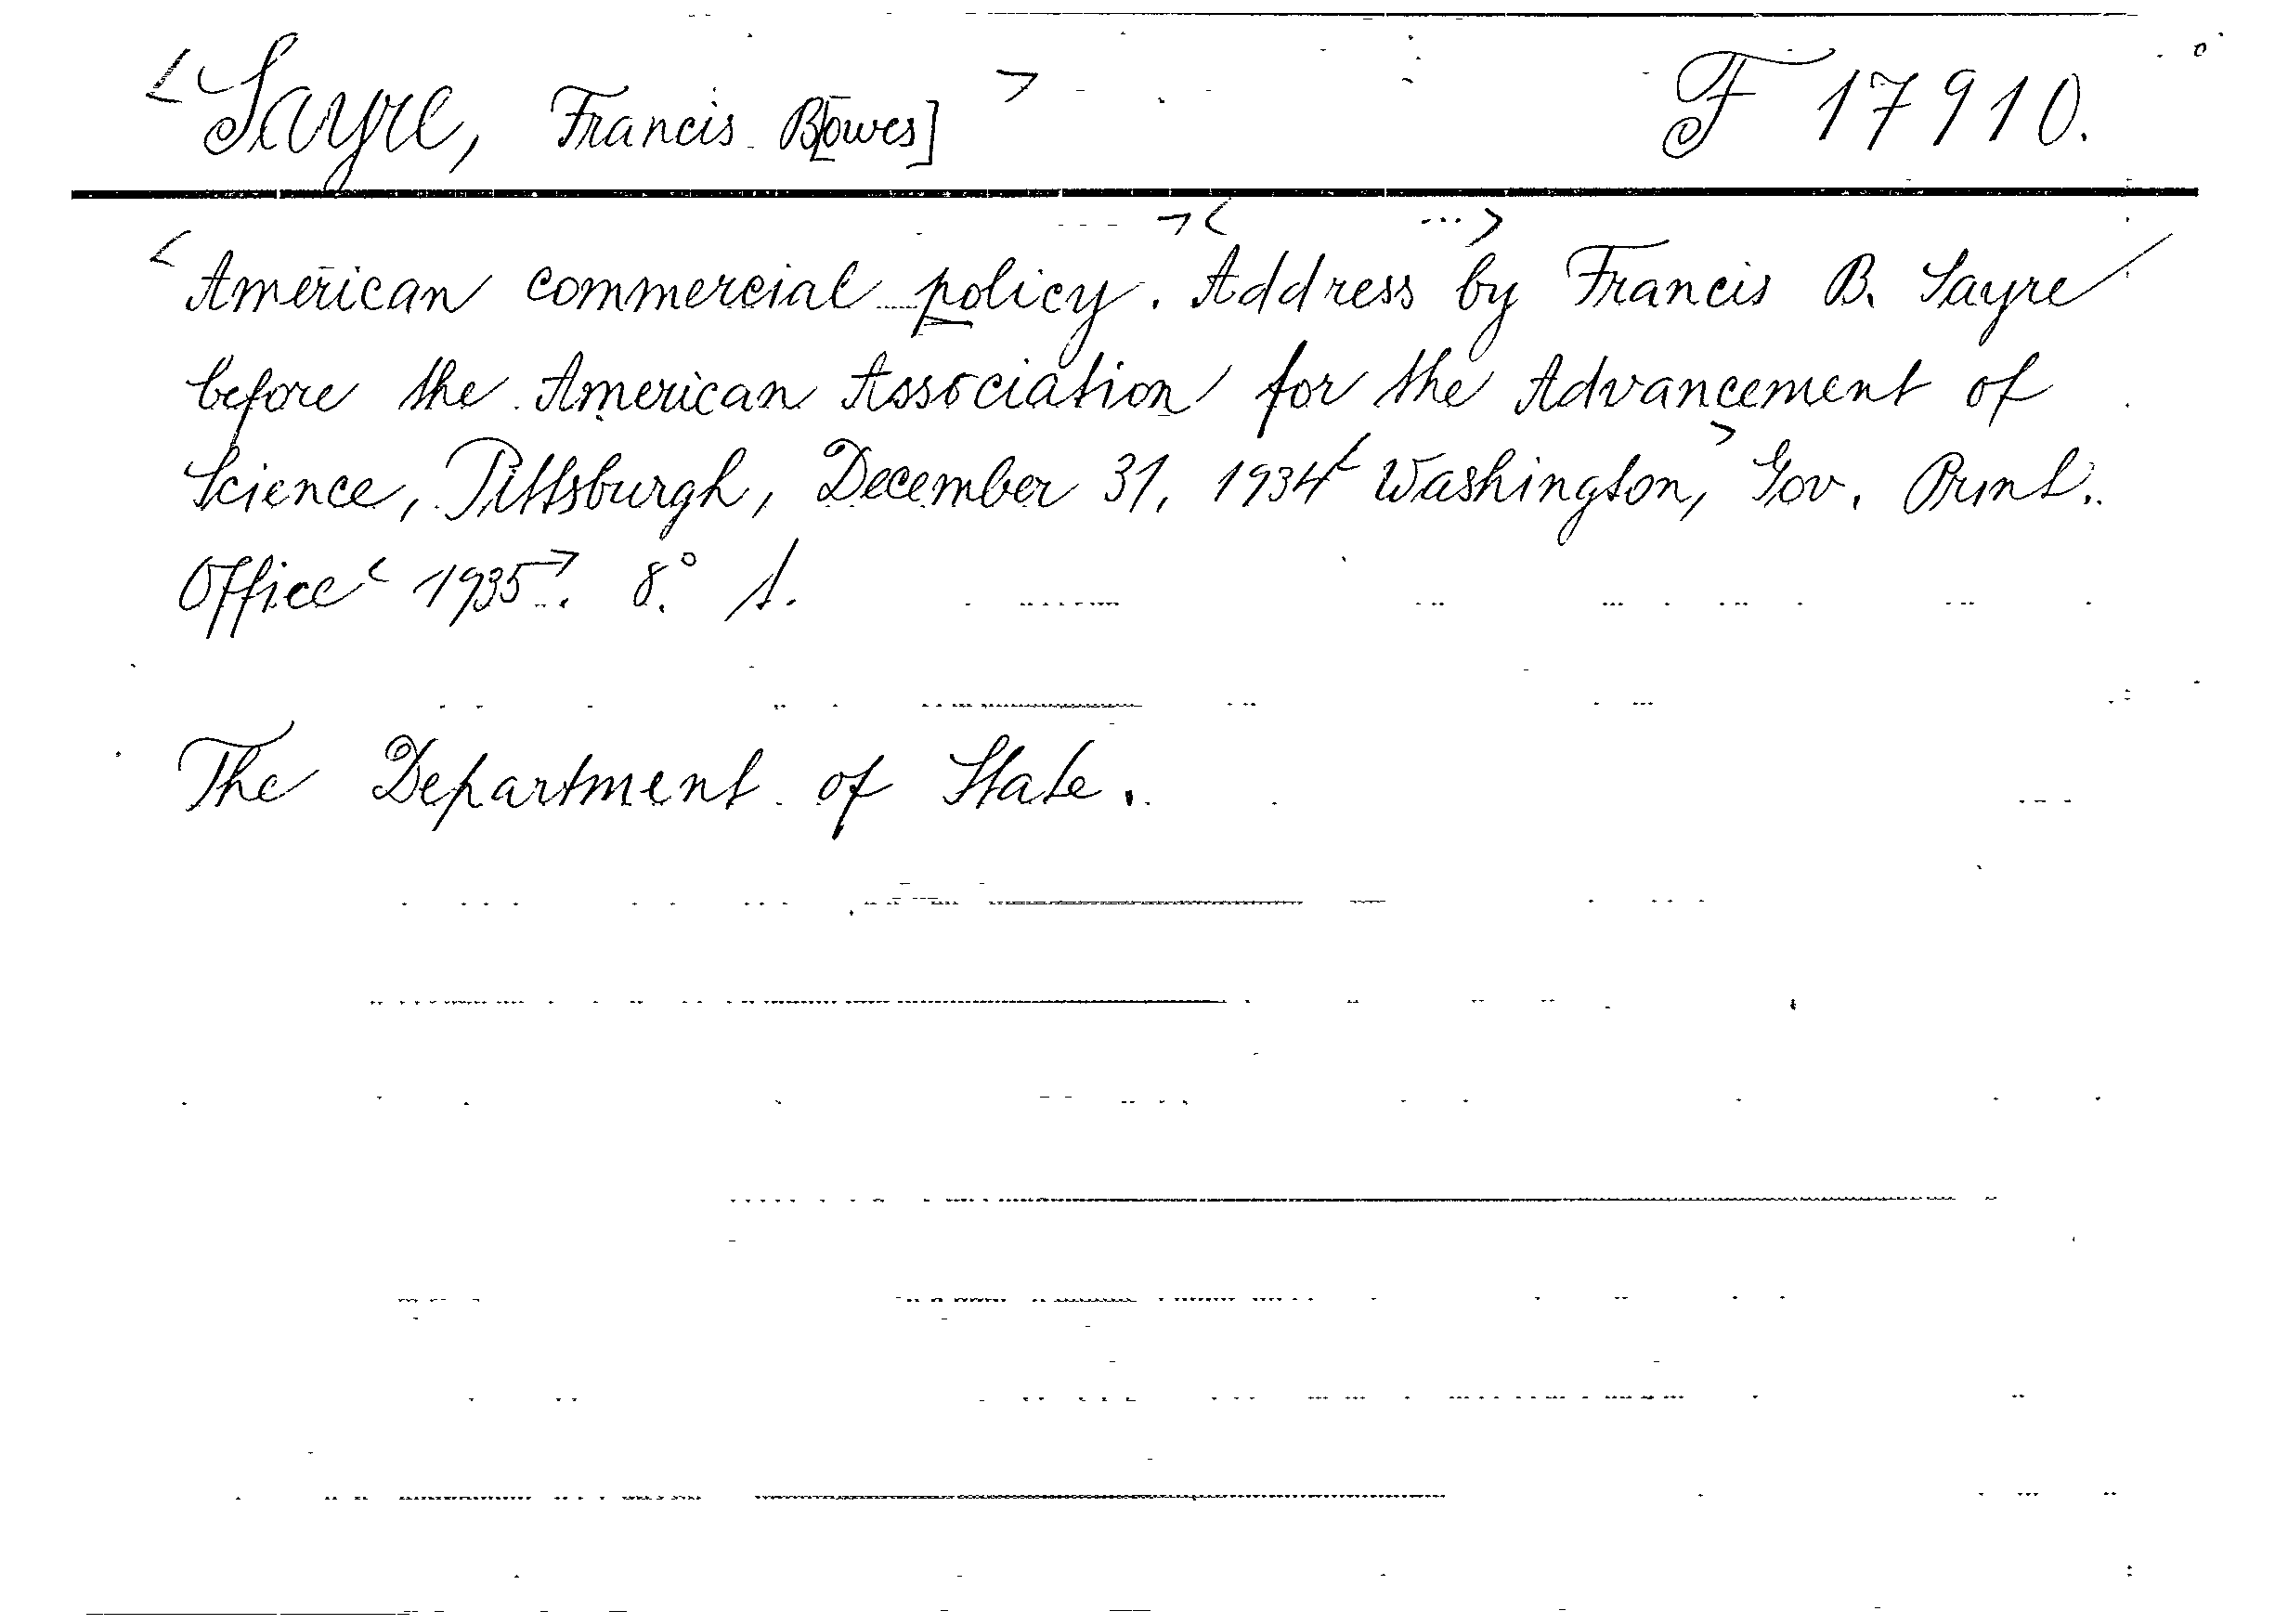 <Sayre, Francis B[owes]> F 17910.
<American commercial policy.><Address ...> by Francis B. Sayre
before the American Association for the Advancement of
Science, Pittsburgh, December 31, 1934 <Washington,> Gov. Print.
Office <1935>. 8°. 1.
The Department of State.